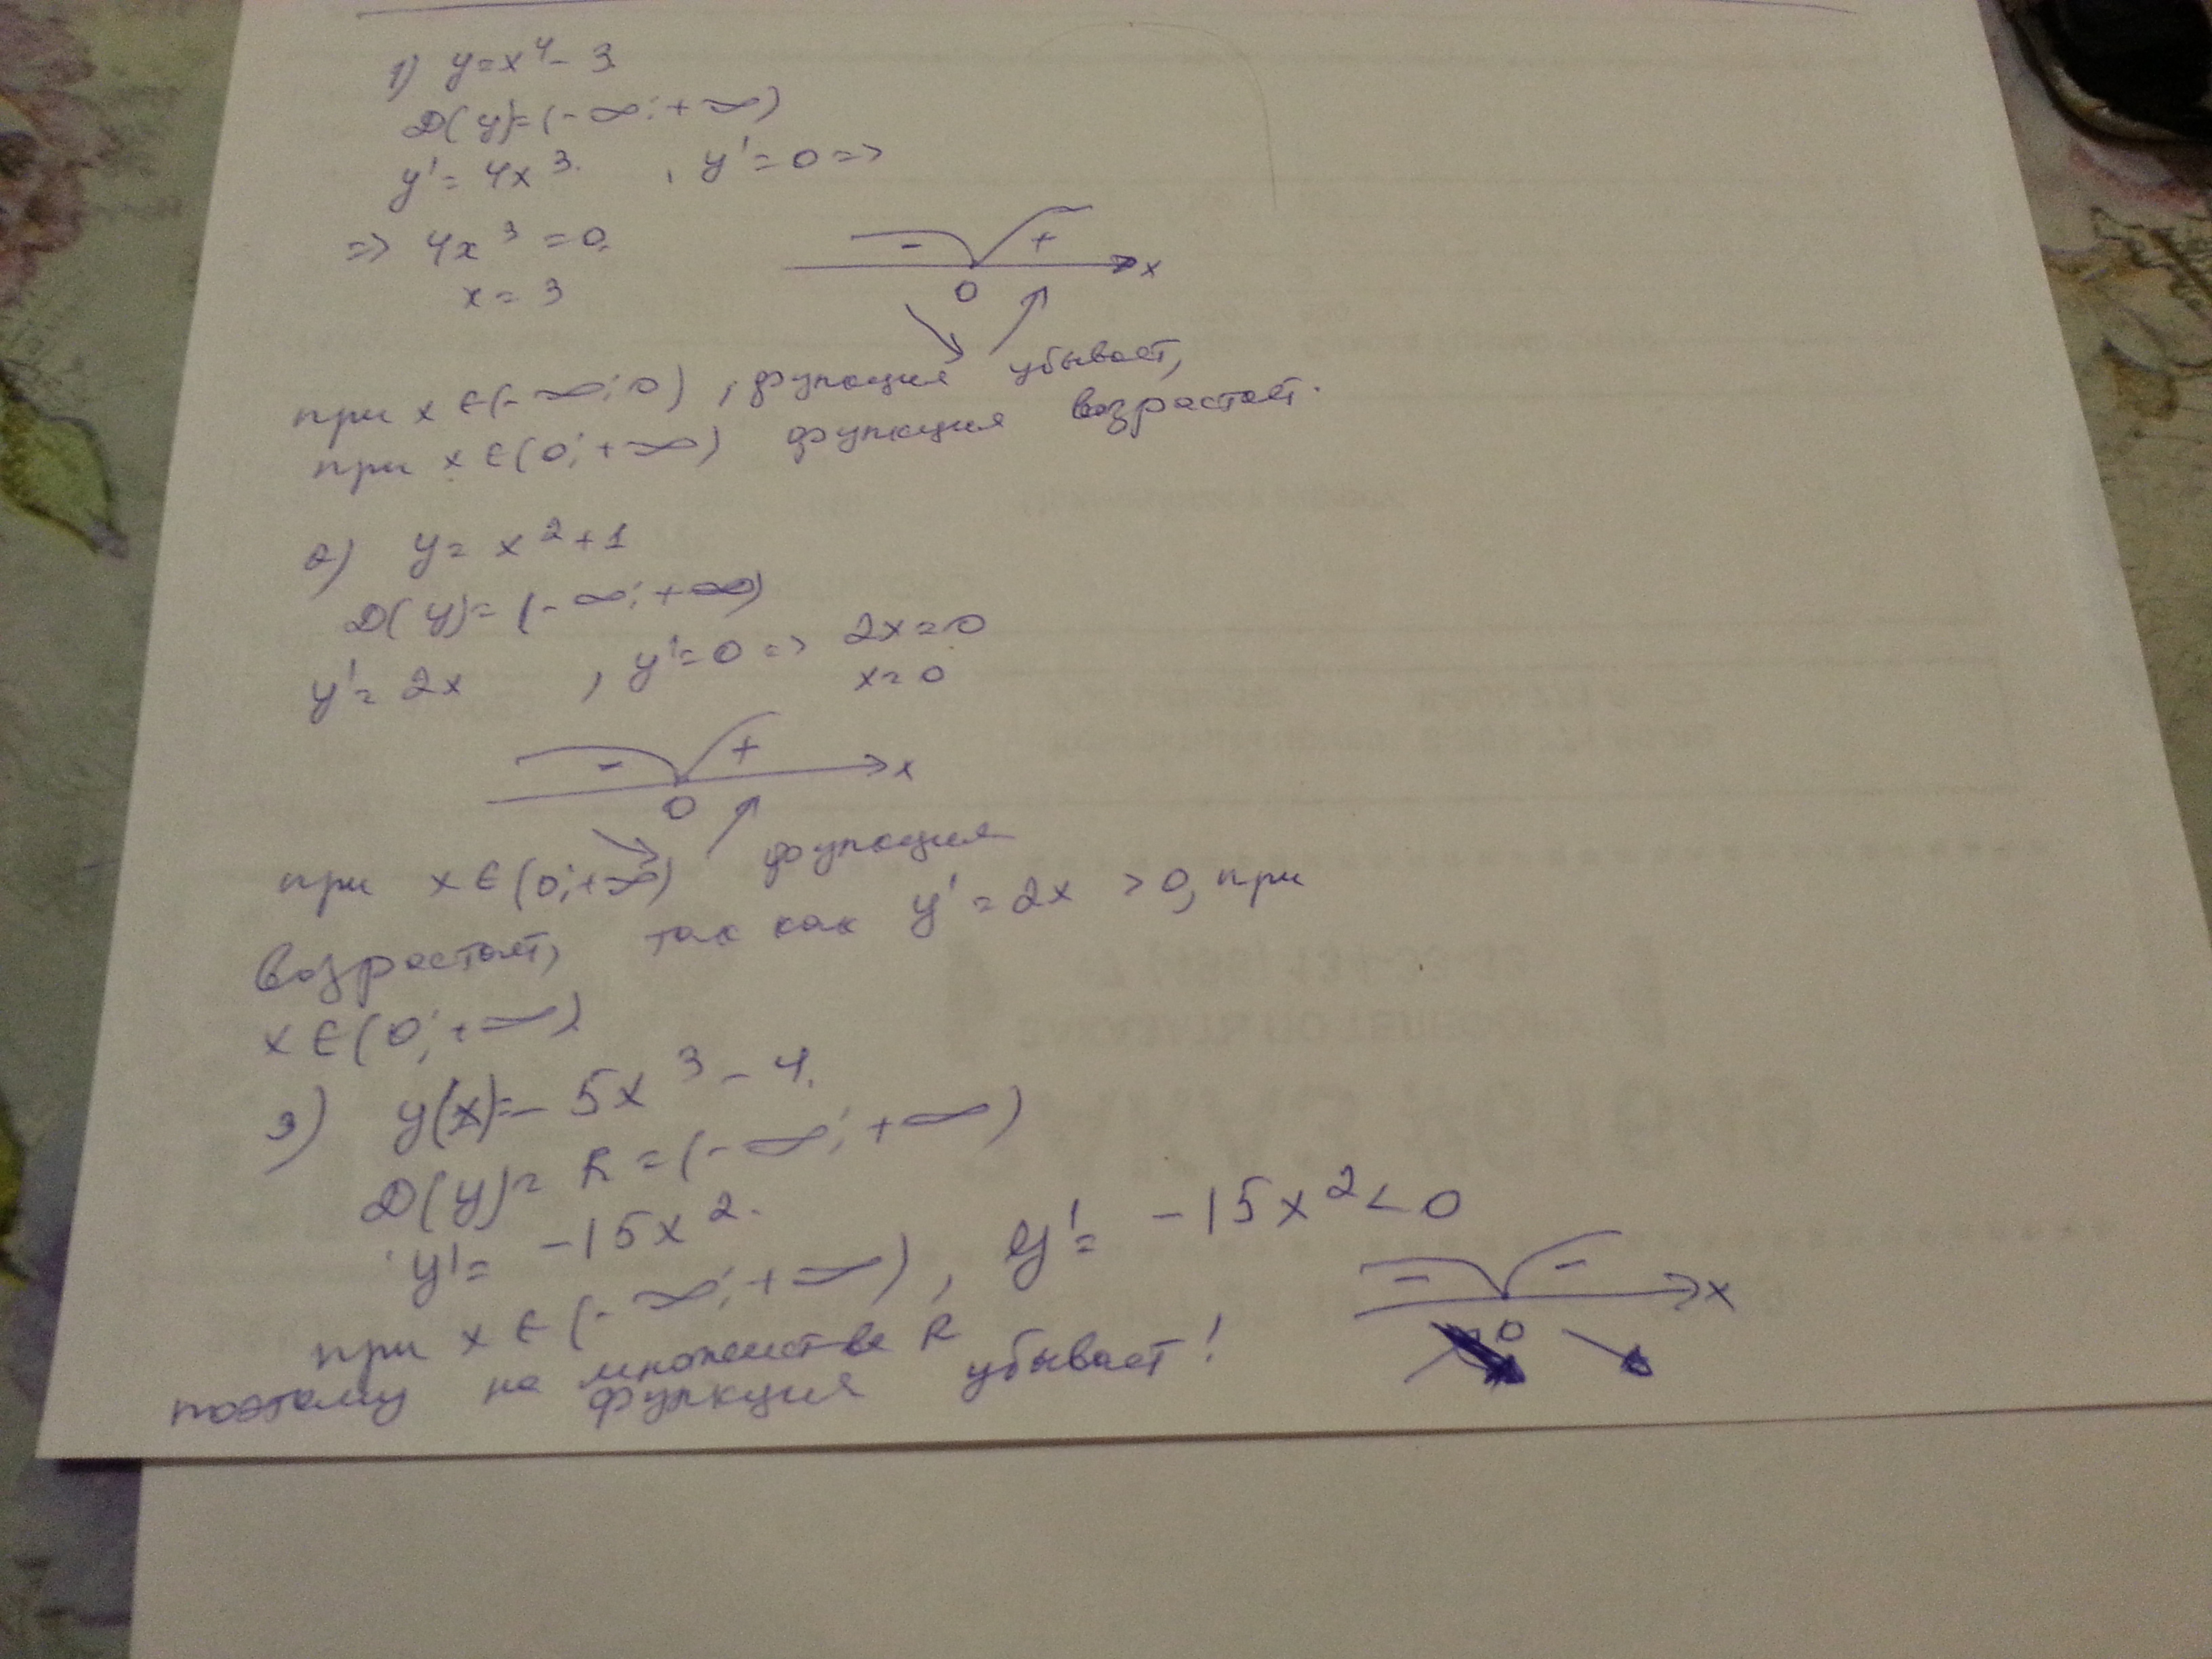 1) y=x⁴-3
D(y)=(-∞;+∞)
y'=4x³. , y'=0=>
=> 4x³=0.
x=3
- + x
0
при x∈(-∞;0), функция убывает,
при x∈(0;+∞) функция возрастает.
2) y=x²+1
D(y)=(-∞;+∞)
y'=2x , y'=0=> 2x=0
x=0
- + x
0
при x∈(0;+∞) функция
возрастает, так как y'=2x >0, при
x∈(0;+∞)
3) y(x)=-5x³-4.
D(y)=R=(-∞;+∞)
y'=-15x².
при x∈(-∞;+∞), y'=-15x²<0
- - x
0
поэтому на множестве R
функция убывает!